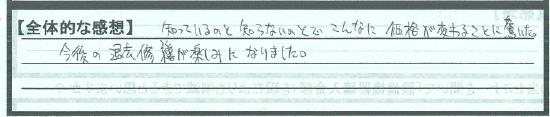 【全体的な感想】 知っているのと知らないのとでこんなに価格が変わることに驚いた。
今後の退去修繕が楽しみになりました。